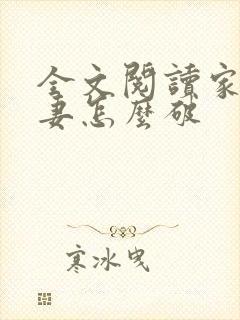 全文閱讀家
妻怎麼破
寒冰曳